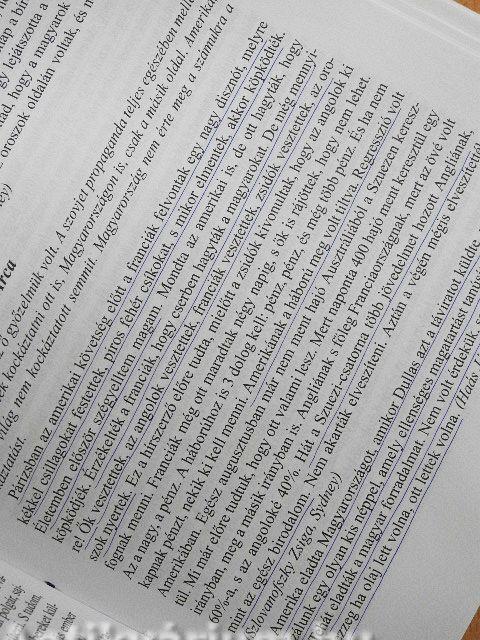 lejátszotta a
hogy a magyarok
oroszok oldalán voltak, és
győzelmük volt. A szovjet propaganda teljes egészében
kockáztatni ott is, Magyarországon is, csak a másik oldal.
nem kockáztatott semmit. Magyarország nem érte meg a számukra a
Párizsban az amerikai követség előtt a franciák felvontak egy nagy disznót, melyre
kékkel csillagokat festettek, piros fehér csíkokat, s mikor elmentek, akkor köpködték.
Életemben először szégyelltem magam. Mondta az amerikai is, de ott hagyták, hogy
köpködjék. Érzékelték a franciák, hogy cserben hagyták a magyarokat. De még mennyi-
re! Ők vesztettek, az angolok vesztettek, franciák vesztettek, zsidók vesztettek, az oro-
szok nyertek. Ez a hírszerző előre tudta, mielőtt a zsidók kivonultak, hogy az angolok ki
fognak menni. Franciák még ott maradtak négy napig, s ők is rájöttek, hogy nem lehet.
Az a nagy, a pénz. A háborúhoz is 3 dolog kell: pénz, pénz, és még több pénz. És ha nem
kapnak pénzt, nekik ki kell menni. Amerikának a háború meg volt tiltva. Regresszió volt
Amerikában. Egész augusztusban már nem ment hajó Ausztráliából a Szuezen keresz-
tül. Mi már előre tudtuk, hogy ott valami lesz. Mert naponta 400 hajó ment keresztül egy
irányban meg a másik irányban is. Angliának s főleg Franciaországnak, mert az övé volt
60%-a, s az angoloké 40%. Hát a Szuezi-csatorna több jövedelmet hozott Angliának,
mint az egész birodalom. Nem akarták elveszíteni. Aztán a végén mégis elveszítették
Zsiga, Sydney)
Amerika eladta Magyarországot, amikor Dullas azt a táviratot küldte,
olyan kis néppel, amely ellenséges magatartást
eladták a magyar forradalmat. Nem volt érdekük,
ha olaj lett volna, ott lettek volna.